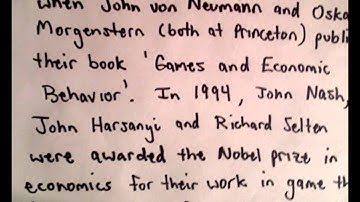 when John von Neumann and Oska
Morgenstern (both at Princeton) publi
their book 'Games and Economic
Behavior'. In 1994, John Nash,
John Harsanyi and Richard Selten
were awarded the Nobel prize in
economics for their work in game th